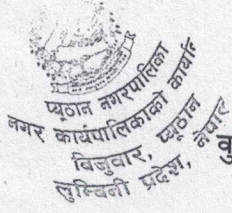 प्यूठान नगरपालिका
नगर कार्यपालिकाको कार्या
विजुवार, प्यूठान
लुम्बिनी प्रदेश, नेपाल